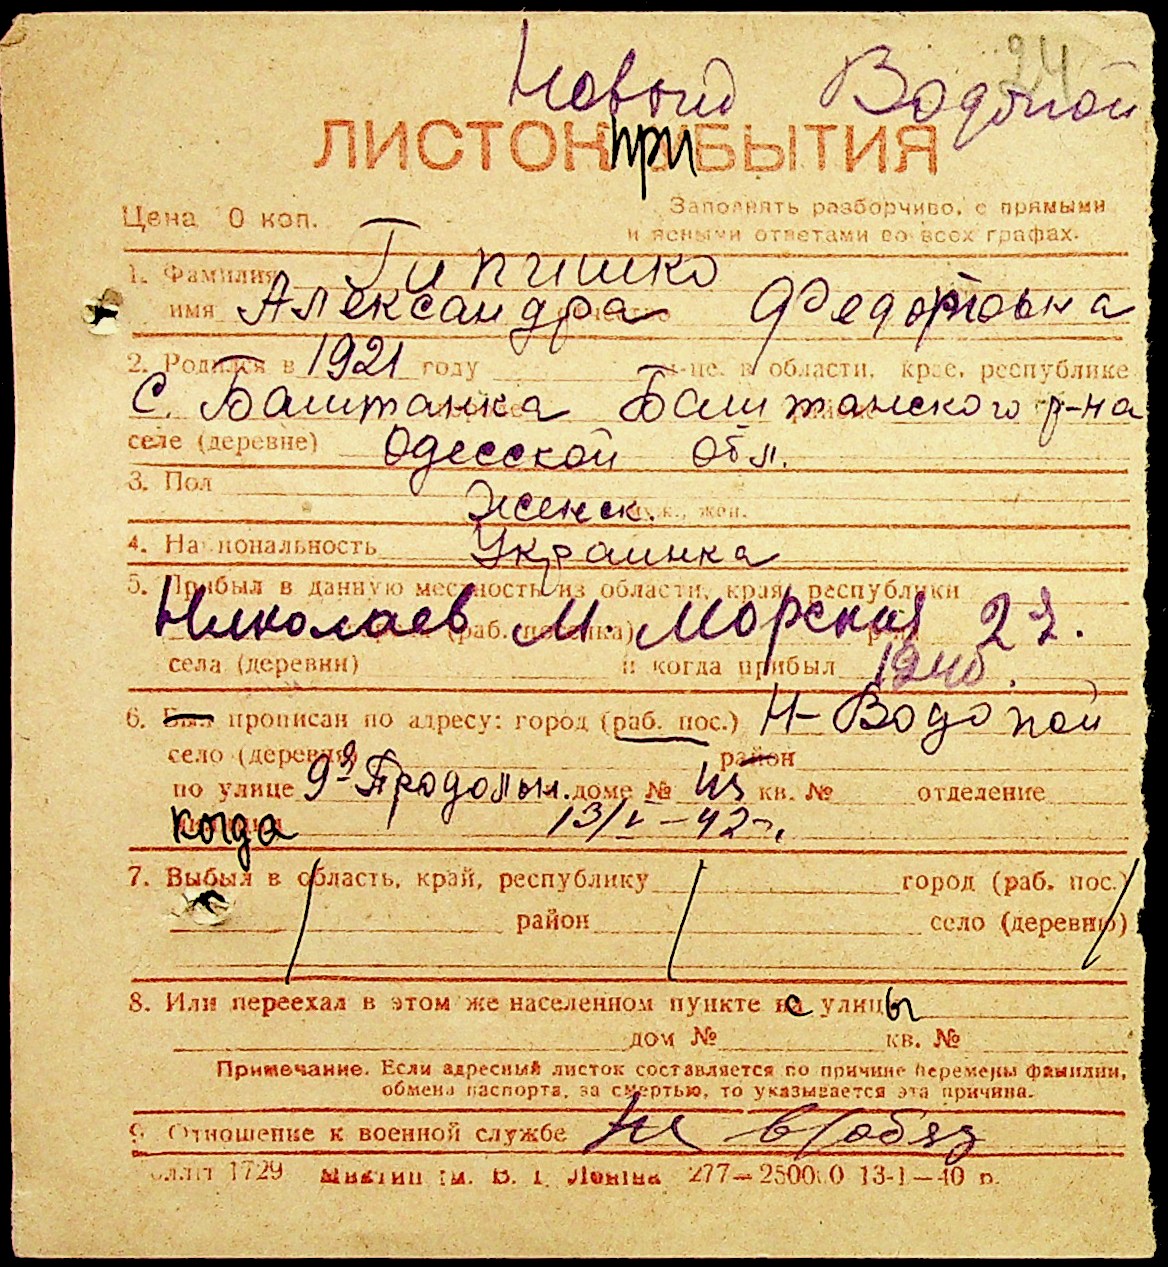 24
Новый Водопой
ЛИСТОК при БЫТИЯ
Цена 10 коп.
Заполнять разборчиво, с прямыми
и ясными ответами во всех графах.
1. Фамилия Гипишко
имя Александра отчество Федоровна
2. Родился в 1921 году м-це, в области, крае, республике
С. Баштанка Баштанского р-на
селе (деревне) Одесской обл.
3. Пол
Женск. муж., жен.
4. Национальность Украинка
5. Прибыл в данную местность из области, края, республики
Николаев М. Морская 27.
села (деревни) и когда прибыл
6. Был прописан по адресу: город (раб. пос.) Н-Водопой
село (деревня) район
по улице 9я Продольн. доме № кв. № отделение
когда 13/V-42 г.
7. Выбыл в область, край, республику город (раб. пос.)
район село (деревню)
8. Или переехал в этом же населенном пункте с улицы
дом № кв. №
Примечание. Если адресный листок составляется по причине перемены фамилии,
обмена паспорта, за смертью, то указывается эта причина.
9. Отношение к военной службе не в/обяз
1729 277—250000 13-1—40 р.